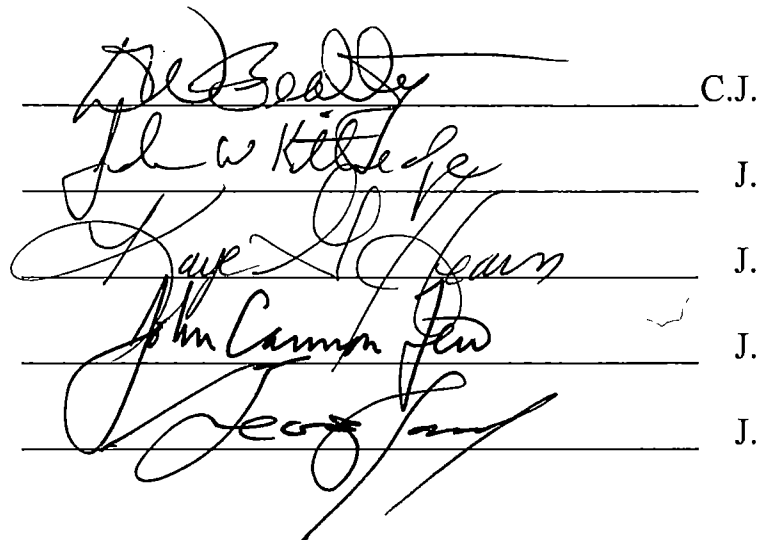 Beatty C.J.
John W Kittredge J.
Kaye G Hearn J.
John Cannon Few J.
George J.